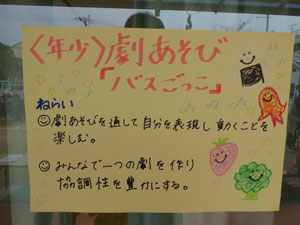 〈年少〉劇あそび
「バスごっこ」
ねらい
劇あそびを通して自分を表現し動くことを
楽しむ。
みんなで一つの劇を作り
協調性を豊かにする。